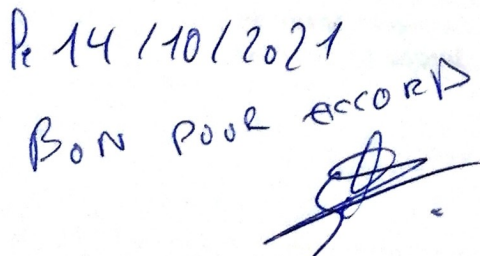 Le 14/10/2021
BON POUR ACCORD